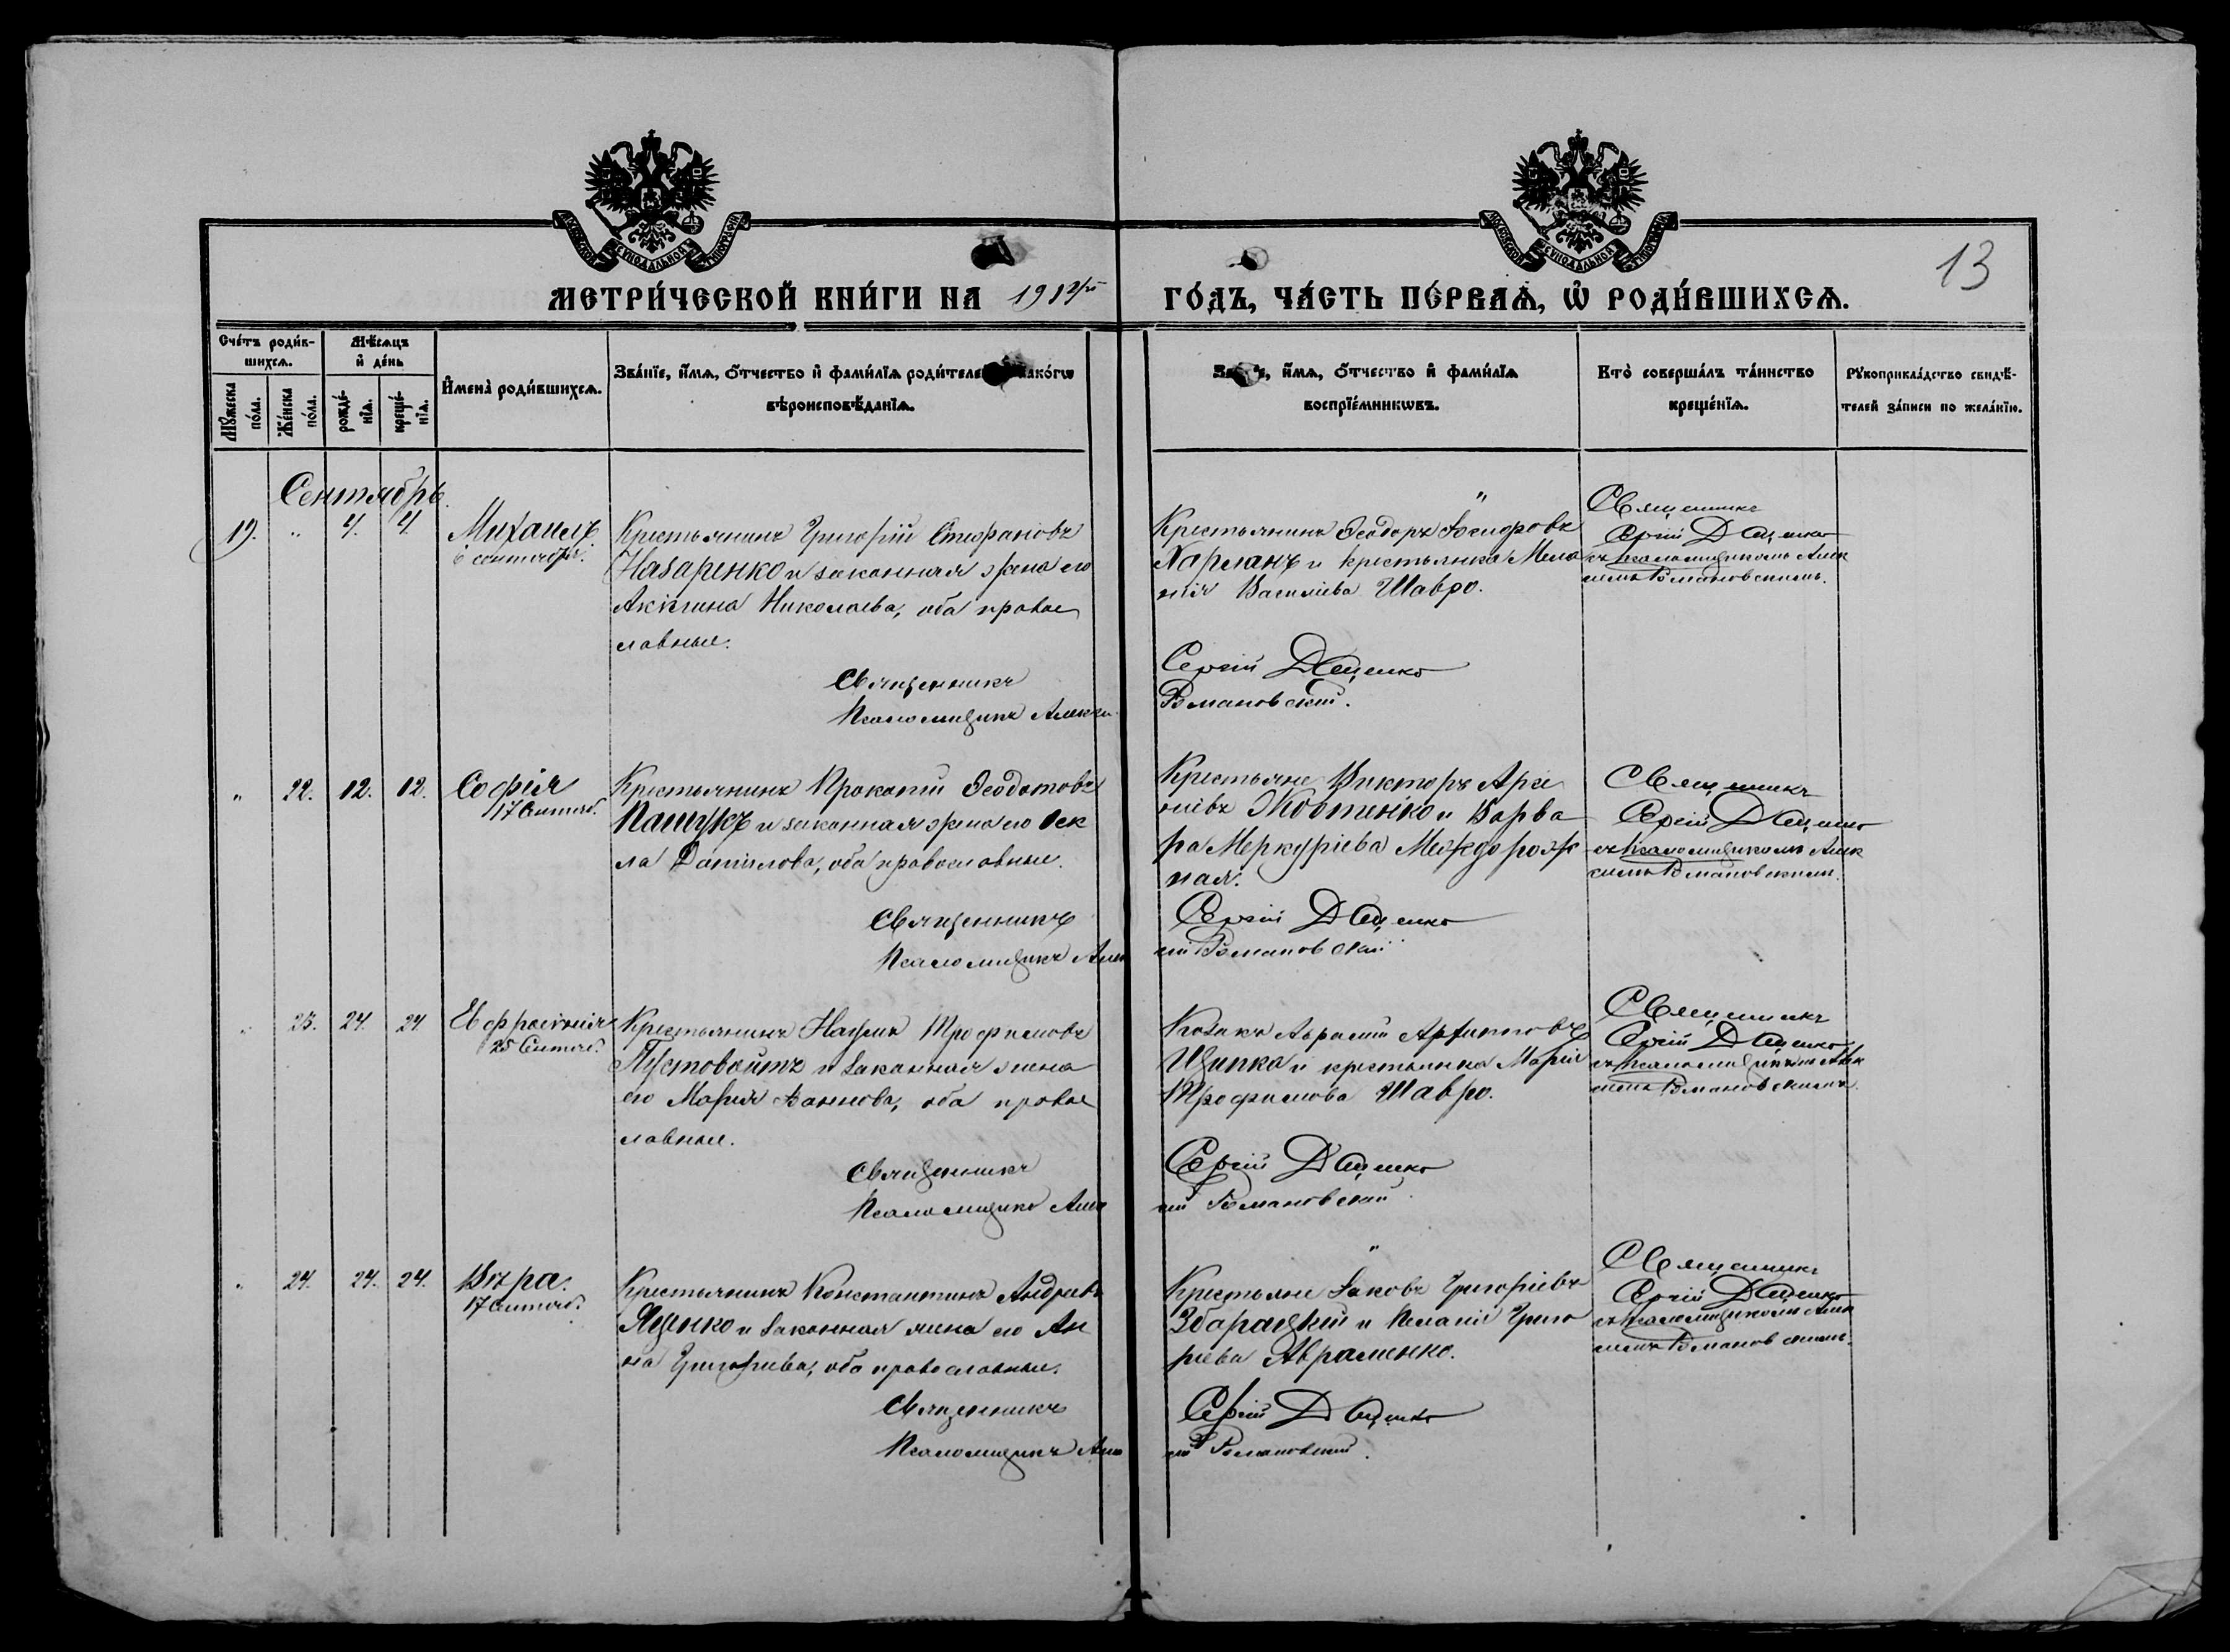 13
МЕТРИ́ЧЕСКОЙ КНИ́ГИ НА 1912й ГО́ДЪ, ЧА́СТЬ ПЕ́РВАѦ, Ѡ҆ РОДИ́ВШИХСѦ.
Сче́тъ роди́в-
шихсѧ.
Мꙋ́жеска по́ла.
Же́нска по́ла.
Мѣ́сѧцъ
и҆ де́нь
рожде́-
нїѧ.
креще́-
нїѧ.
И҆мена̀ роди́вшихсѧ.
Зва́нїе, и҆́мѧ, ѻ҆́тчество и҆ фами́лїѧ роди́теле
вѣроисповѣ́данїѧ.
и҆́мѧ, ѻ҆́тчество и҆ фами́лїѧ
воспрїе́мникѡвъ.
Кто̀ соверша́лъ та́инство
креще́нїѧ.
Рꙋкоприкла́дство свидѣ́-
телей за́писи по жела́нїю.
Сентябрь
19. " 4. 4. Михаилъ
6 сентября.
Крестьянинъ Григорій Стефановъ
Назаренко и законная жена его
Акилина Николаева, оба правос
лавные.
Священникъ
Псаломщикъ Алексі
Крестьянинъ Ѳеодоръ Іосифовъ
Харланъ и крестьянка Мела
нія Василіева Шавро.
Сергій Даценко
Романовскій.
Священникъ
Сергій Даценко
съ псаломщикомъ Алек
сіемъ Романовскимъ.
" 22. 12. 12. Софія
17 Сентяб.
Крестьянинъ Прокопій Ѳеодотовъ
Пашукъ и законная жена его Ѳек
ла Даніилова, оба православные.
Священникъ
Псаломщикъ Алек
Крестьяне Викторъ Арсе
ніевъ Жовтенко и Варва
ра Меркуріева Междорож
ная.
Сергій Даценко
сій Романовскій
Священникъ
Сергій Даценко
съ псаломщикомъ Алек
сіемъ Романовскимъ.
" 23. 24. 24. Евфросинія
25 Сентяб.
Крестьянинъ Наумъ Трофимовъ
Пустовойтъ и законная жена
его Марія Іоаннова, оба правос
лавные.
Священникъ
Псаломщикъ Алек
Козакъ Аврамій Архиповъ
Щипка и крестьянка Марія
Трофимова Шавро.
Сергій Даценко
сій Романовскій
Священникъ
Сергій Даценко
съ псаломщикомъ Алек
сіемъ Романовскимъ.
" 24. 24. 24. Вѣра.
17 Сентяб.
Крестьянинъ Константинъ Андреевъ
Яценко и законная жена его Ан
на Григорьева, оба православные.
Священникъ
Псаломщикъ Алек
Крестьяне Іаковъ Григоріевъ
Збарацкій и Пелагія Григо
ріева Авраменко.
Сергій Даценко
сій Романовскій.
Священникъ
Сергій Даценко
съ псаломщикомъ Алек
сіемъ Романовскимъ.